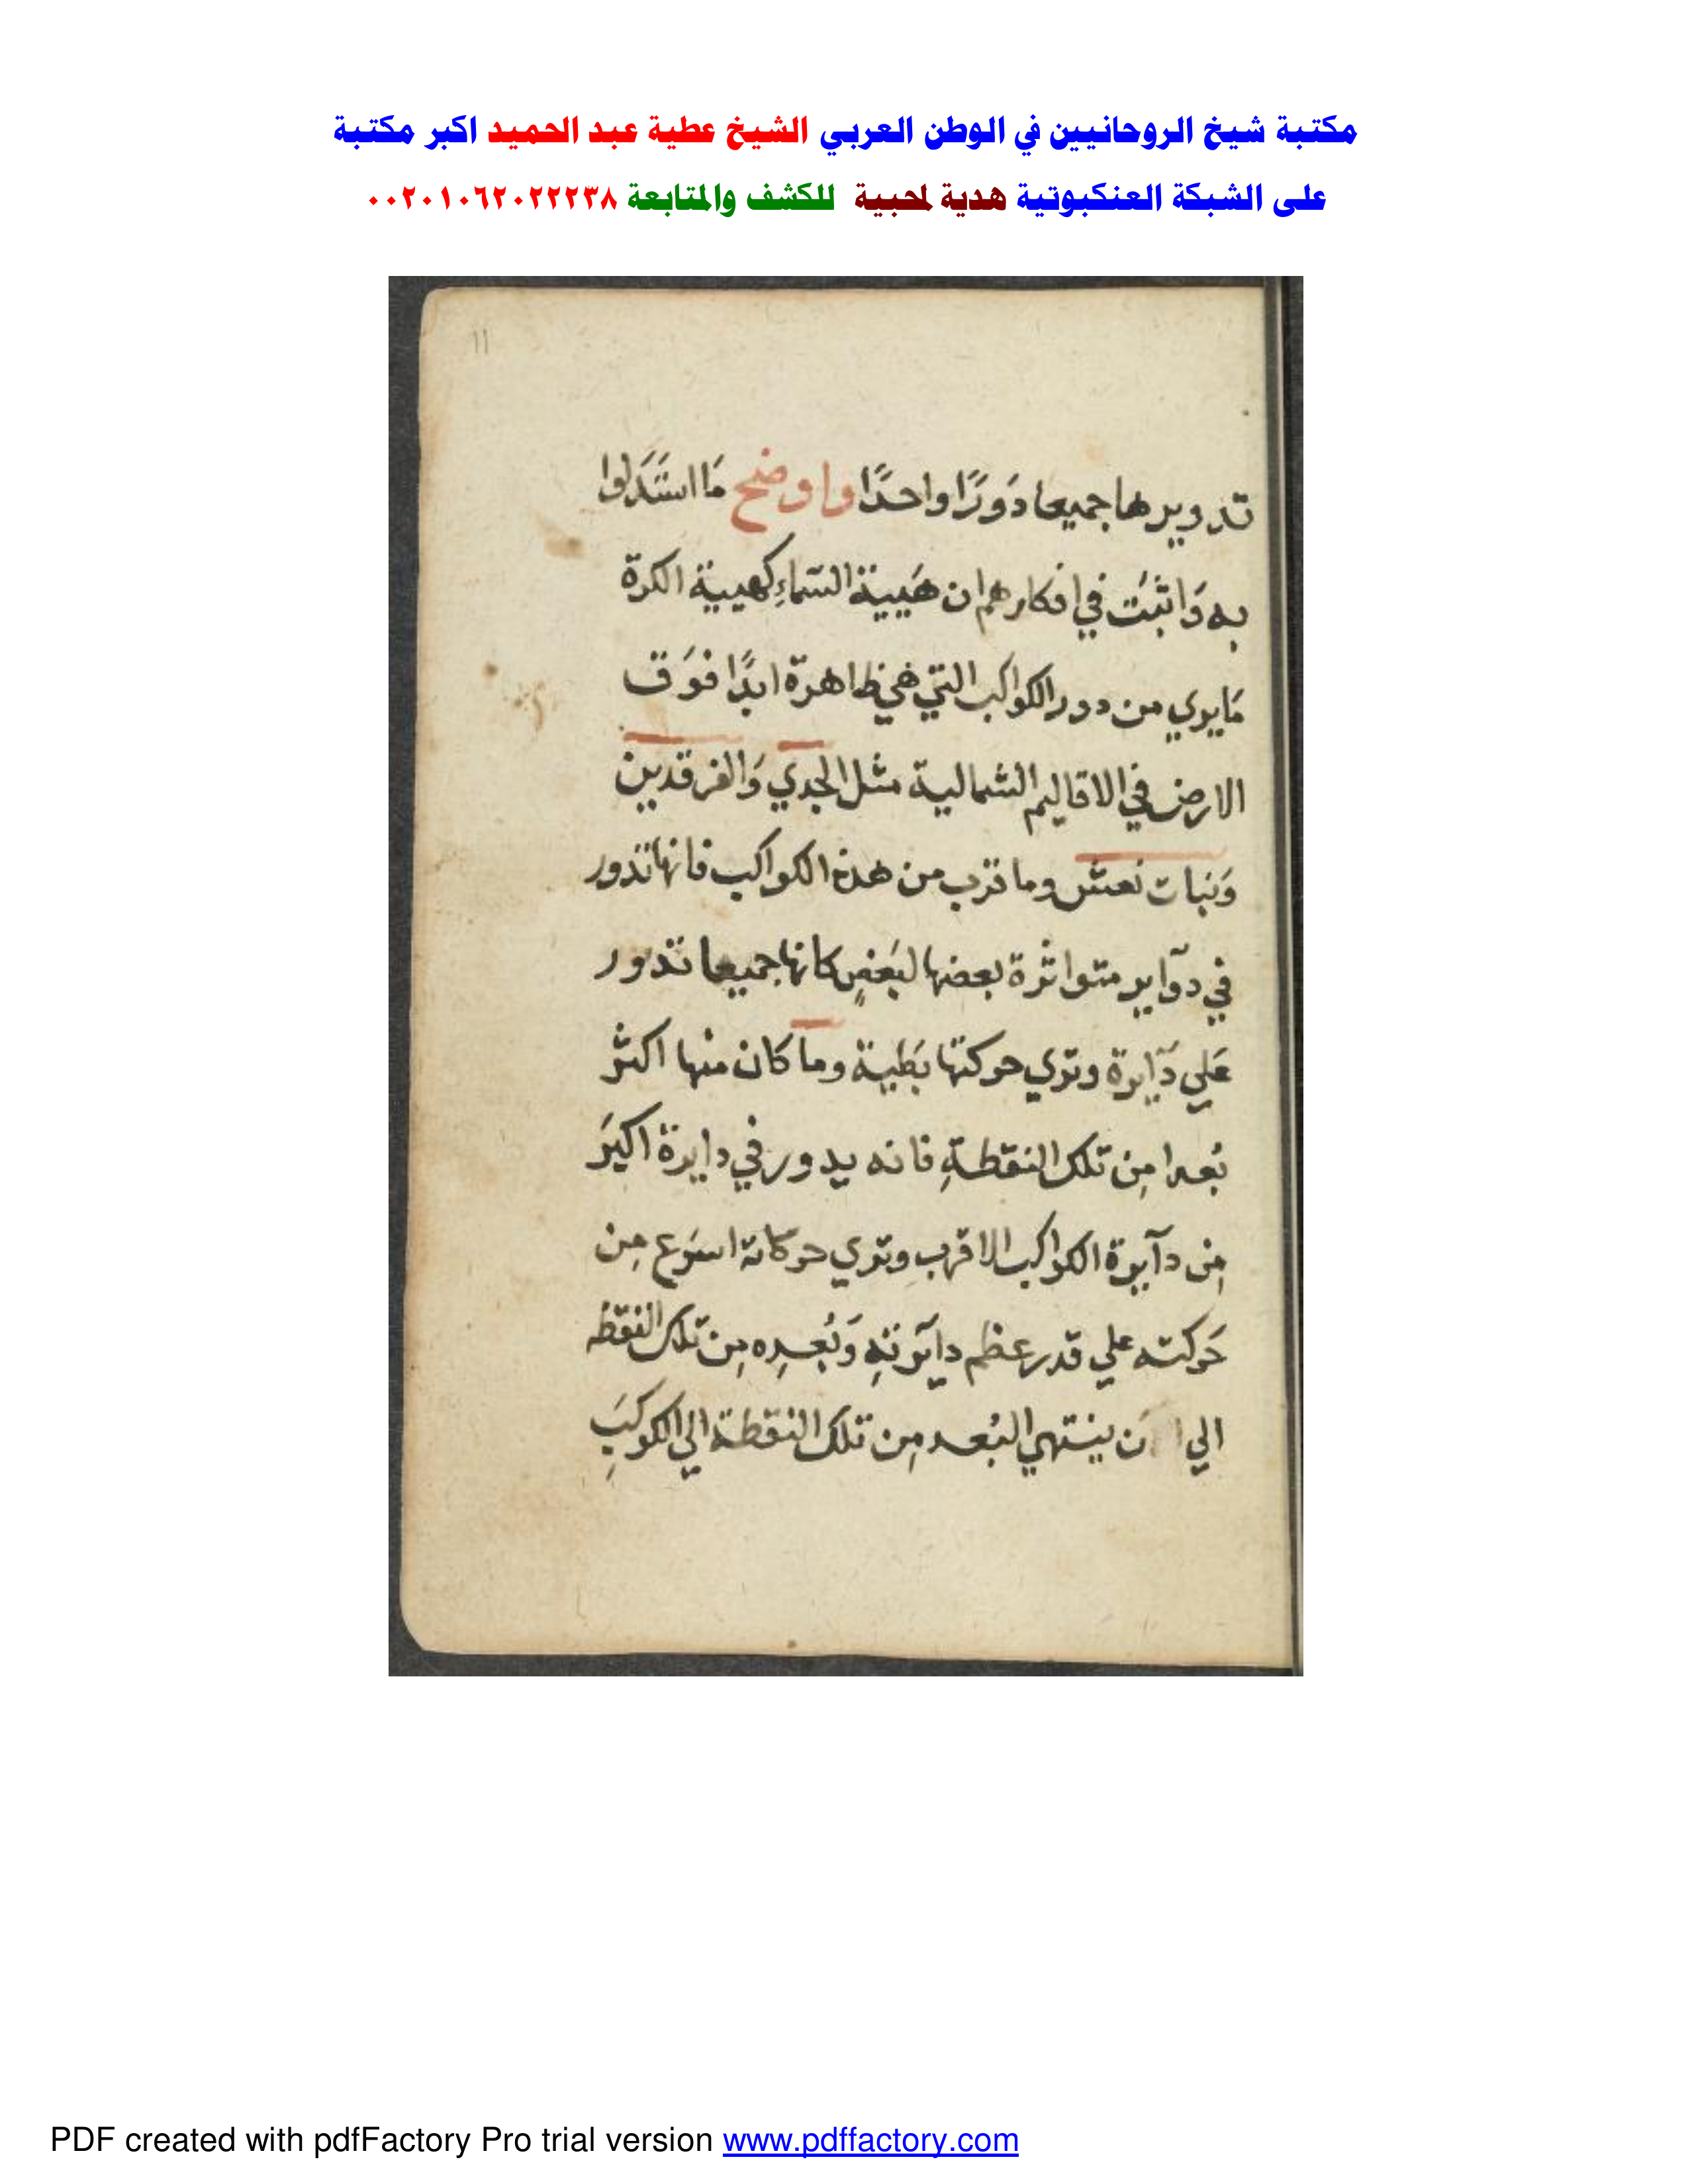 مكتبة شيخ الروحانيين في الوطن العربي الشيخ عطية عبد الحميد اكبر مكتبة
على الشبكة العنكبوتية هدية لمحبية للكشف والمتابعة ٠٠٢٠١٠٦٢٠٢٢٢٣٨
١١
تدويرها جميعا دَورًا واحدًا واوضح مَا استَدَلوا
به وَاثبَتَ في افكارهم ان هَيية السّماءِ كهيية الكرة
مَا يري من دور الكواكب التي هي ظاهرة ابدًا فوَق
الارض في الاقاليم الشمالية مثل الجدي وَالفرقدين
وَبَنات نعش وما قرب من هذه الكواكب فانها تدور
في دوآير متواثرة بعضها لبَعضٍ كانها جميعا تدور
عَلي دَآيرة وتري حركتها بَطية وما كان منها اكثر
بُعدا مِن تلك النقطةِ فانه يدور في دايرة اكبَر
مِن دآيرة الكواكب الاقرب وتري حركاته اسرَع مِن
حَركته علي قدر عظم دايَرتهِ وَبُعدِه مِن تلك النقطه
الي ان ينتهي البُعد مِن تلك النقطة الي الكوكبَ
PDF created with pdfFactory Pro trial version www.pdffactory.com